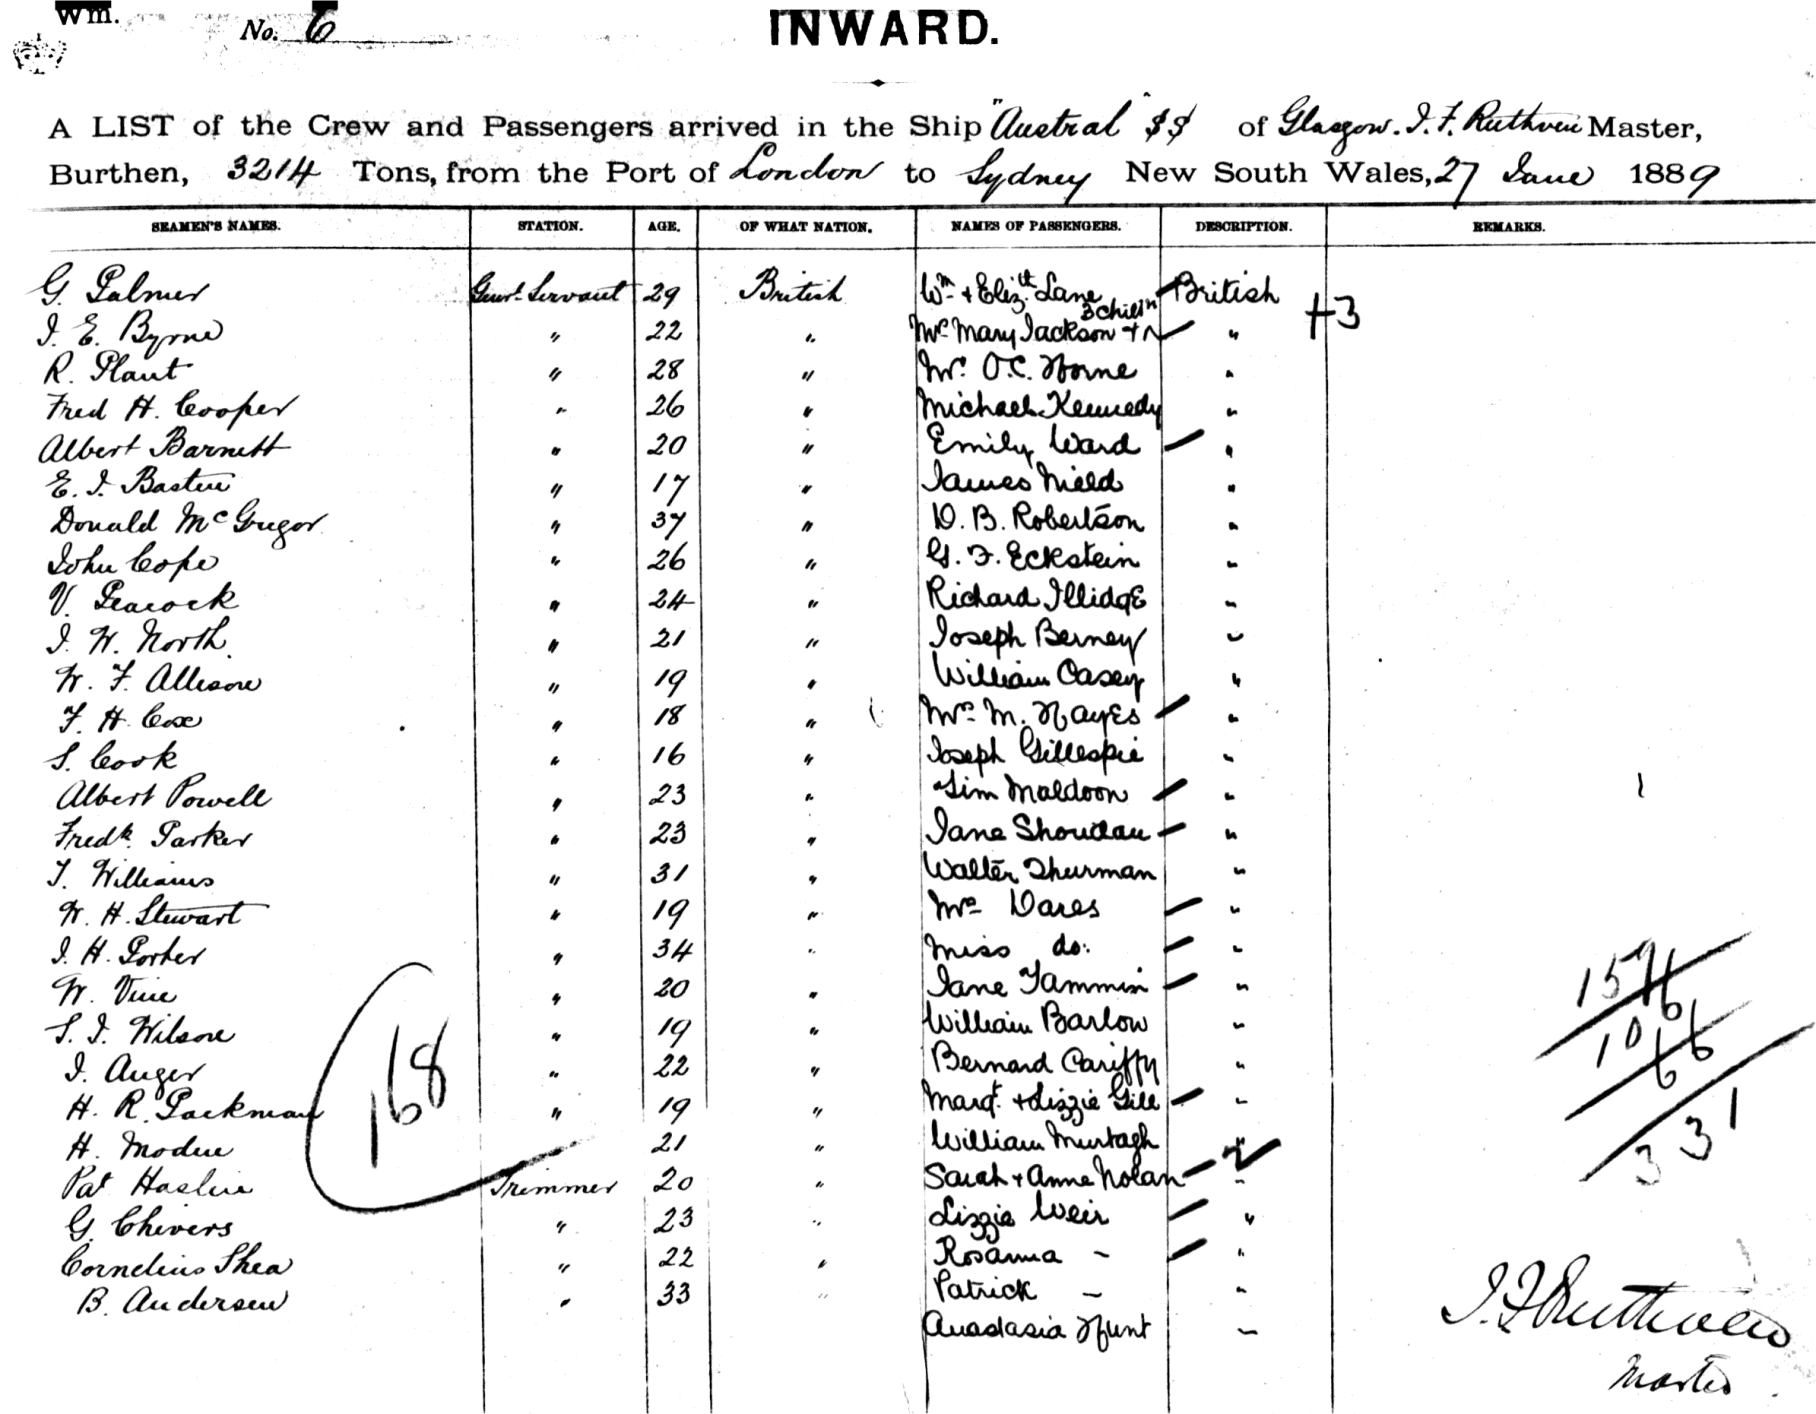 Wm.
No. 6
INWARD.
A LIST of the Crew and Passengers arrived in the Ship "Austral" SS of Glasgow. J. F. Ruthven Master,
Burthen, 3214 Tons, from the Port of London to Sydney New South Wales, 27 June 1889
SEAMEN'S NAMES. STATION. AGE. OF WHAT NATION. NAMES OF PASSENGERS. DESCRIPTION. REMARKS.
G. Palmer Genrl. Servant 29 British Wm. + Elizth. Lane British
3 chiln
+3
J. E. Byrne " 22 " Mrs. Mary Jackson + " "
R. Plant " 28 " Mr. O.C. Horne "
Fred H. Cooper " 26 " Michael Kennedy "
Albert Barnett " 20 " Emily Ward "
E. J. Bastin " 17 " James Nield "
Donald McGregor " 37 " D. B. Robertson "
John Cope " 26 " G. F. Eckstein "
V. Peacock " 24 " Richard Illidge "
J. W. North " 21 " Joseph Berney "
W. F. Allison " 19 " William Casey "
F. H. Cox " 18 " Mrs. M. Hayes "
S. Cook " 16 " Joseph Gillespie "
Albert Powell " 23 " Tim Maldoon "
Fredk. Parker " 23 " Jane "
T. Williams " 31 " Walter Thurman "
W. H. Stewart " 19 " Mrs Dares "
J. H. Porter " 34 " Miss do: "
W. Vine " 20 " Jane Tammin "
S. J. Wilson " 19 " William Barlow "
J. Auger " 22 " Bernard "
H. R. Packman " 19 " Margt. + Lizzie Gill "
H. Modue " 21 " William Murtagh "
Pat Haslin Trimmer 20 " Sarah + Anne Nolan "
G. Chivers " 23 " Lizzie Weir "
Cornelius Shea " 22 " Rosanna - "
B. Andersen " 33 " Patrick - "
Anastasia Hunt "
168
157
106
66
331
J. F. Ruthven
Master